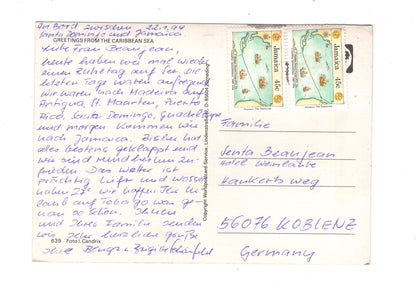 An Bord zwischen 22.1.94
Santo Domingo und Jamaica
GREETINGS FROM THE CARIBBEAN SEA
Liebe Frau Beaujean,
heute haben wir mal wieder
einen Ruhetag auf See. Die
letzten Tage waren aufregend
Wir waren nach Madeira auf
Antigua, St. Maarten, Puerto
Rico, Santo Domingo, Guadeloupe
und morgen kommen wir
nach Jamaica. Bisher hat
alles bestens geklappt und
wir sind rundherum zu-
frieden. Das Wetter ist
prächtig Luft und Wasser
haben 27° wir hoffen Ihr
Urlaub auf Tobago war ge-
nau so schön. Ihnen
und Ihrer Familie senden
wir sehr herzliche Grüße
Ihre
639 Foto I. Cendrix
Jamaica 45c
Jamaica 45c
Familie
Senta Beaujean
Hotel Weinlaube
weg
56076 KOBLENZ
Germany